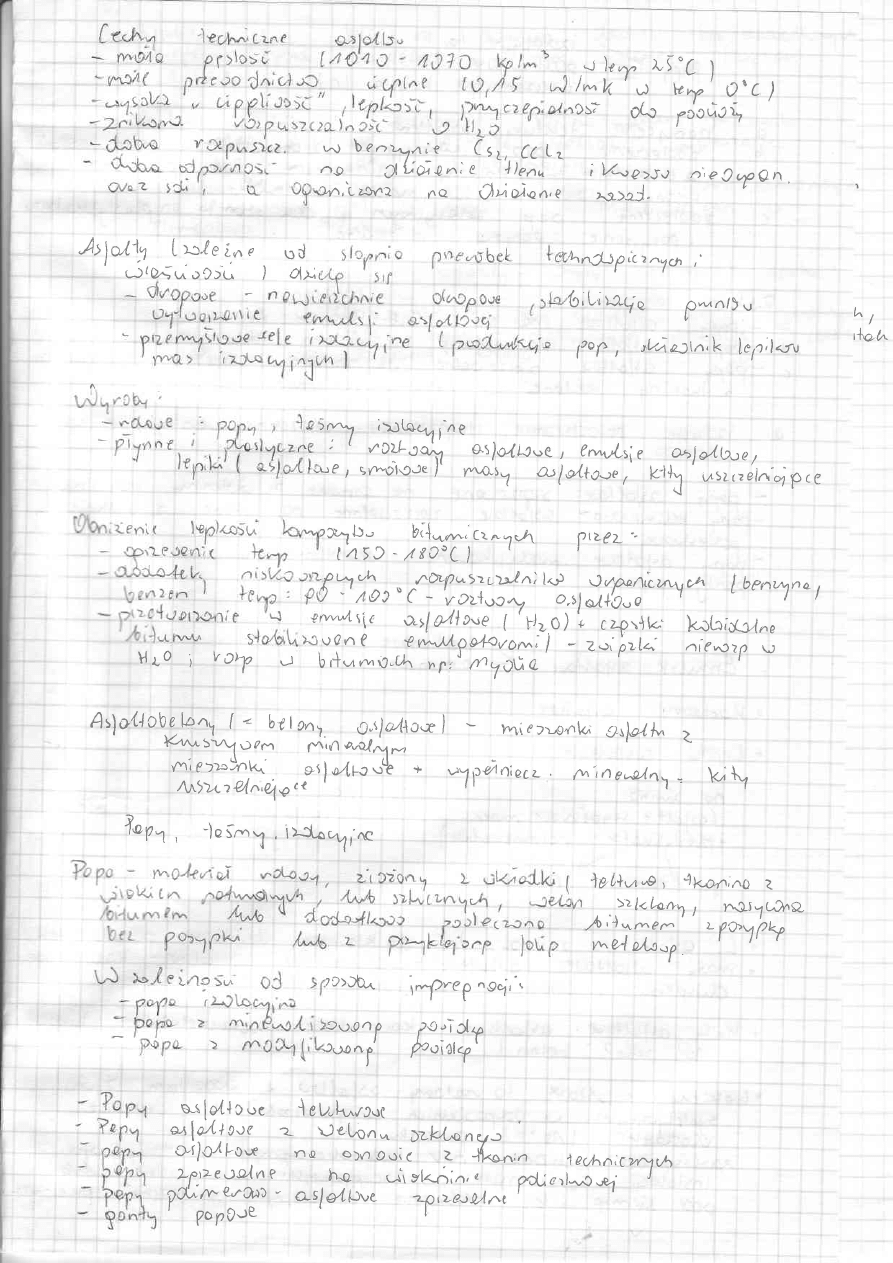 Cechy techniczne asfaltu
- mała gęstość (1010 - 1070 kg/m³ w temp 25°C)
- małe przewodnictwo cieplne (0,15 W/mK w temp 0°C)
- wysoka "ciągliwość", lepkość, przyczepialność do podłoży
- znikoma rozpuszczalność w H₂O
- dobra rozpuszcz. w benzynie CS₂, CCl₂
- dobra odporność na działanie tlenu i kwasów nieorgan.
oraz soli, a ograniczona na działanie zasad.
Asfalty (zależne od stopnia przeróbek technologicznych i
właściwości) dzielą się
- drogowe - nawierzchnie drogowe, stabilizacja gruntów
wytworzenie emulsji asfaltowej
- przemysłowe cele izolacyjne (produkcja pap, składnik lepików
mas izolacyjnych)
n,
itah
Wyroby:
- rolowe : papy, taśmy izolacyjne
- płynne i plastyczne : roztwory asfaltowe, emulsje asfaltowe,
lepiki (asfaltowe, smołowe) masy asfaltowe, kity uszczelniające
Obniżenie lepkości kompozytów bitumicznych przez :
- ogrzewanie temp (150 - 180°C)
- dodatek niskowrzących rozpuszczalników organicznych (benzyna,
benzen) temp : 80 - 100°C - roztwory asfaltowe
- przetworzenie w emulsje asfaltowe (H₂O) + cząstki koloidalne
bitumu stabilizowane emulgatorami) - związki nierozp w
H₂O i rozp w bitumach np. mydła
Asfaltobetony (= betony asfaltowe) - mieszanki asfaltu z
kruszywem mineralnym
mieszanki asfaltowe + wypełniacz. mineralny = kity
uszczelniające
Papy, taśmy izolacyjne
Papa - materiał rolowy, złożony z wkładki (tektura, tkanina z
włókien naturalnych, lub sztucznych, welon szklany, nasycona
bitumem lub dodatkowo powleczona bitumem z posypką
bez posypki lub z przyklejoną folią metalową.
W zależności od sposobu impregnacji:
- papa izolacyjna
- papa z mineralizowaną powłoką
- papa z modyfikowaną powłoką
- Papy asfaltowe tekturowe
- Papy asfaltowe z welonu szklanego
- papy asfaltowe na osnowie z tkanin technicznych
- papy zgrzewalne na włókninie poliestrowej
- papy polimerowo - asfaltowe zgrzewalne
- gonty papowe